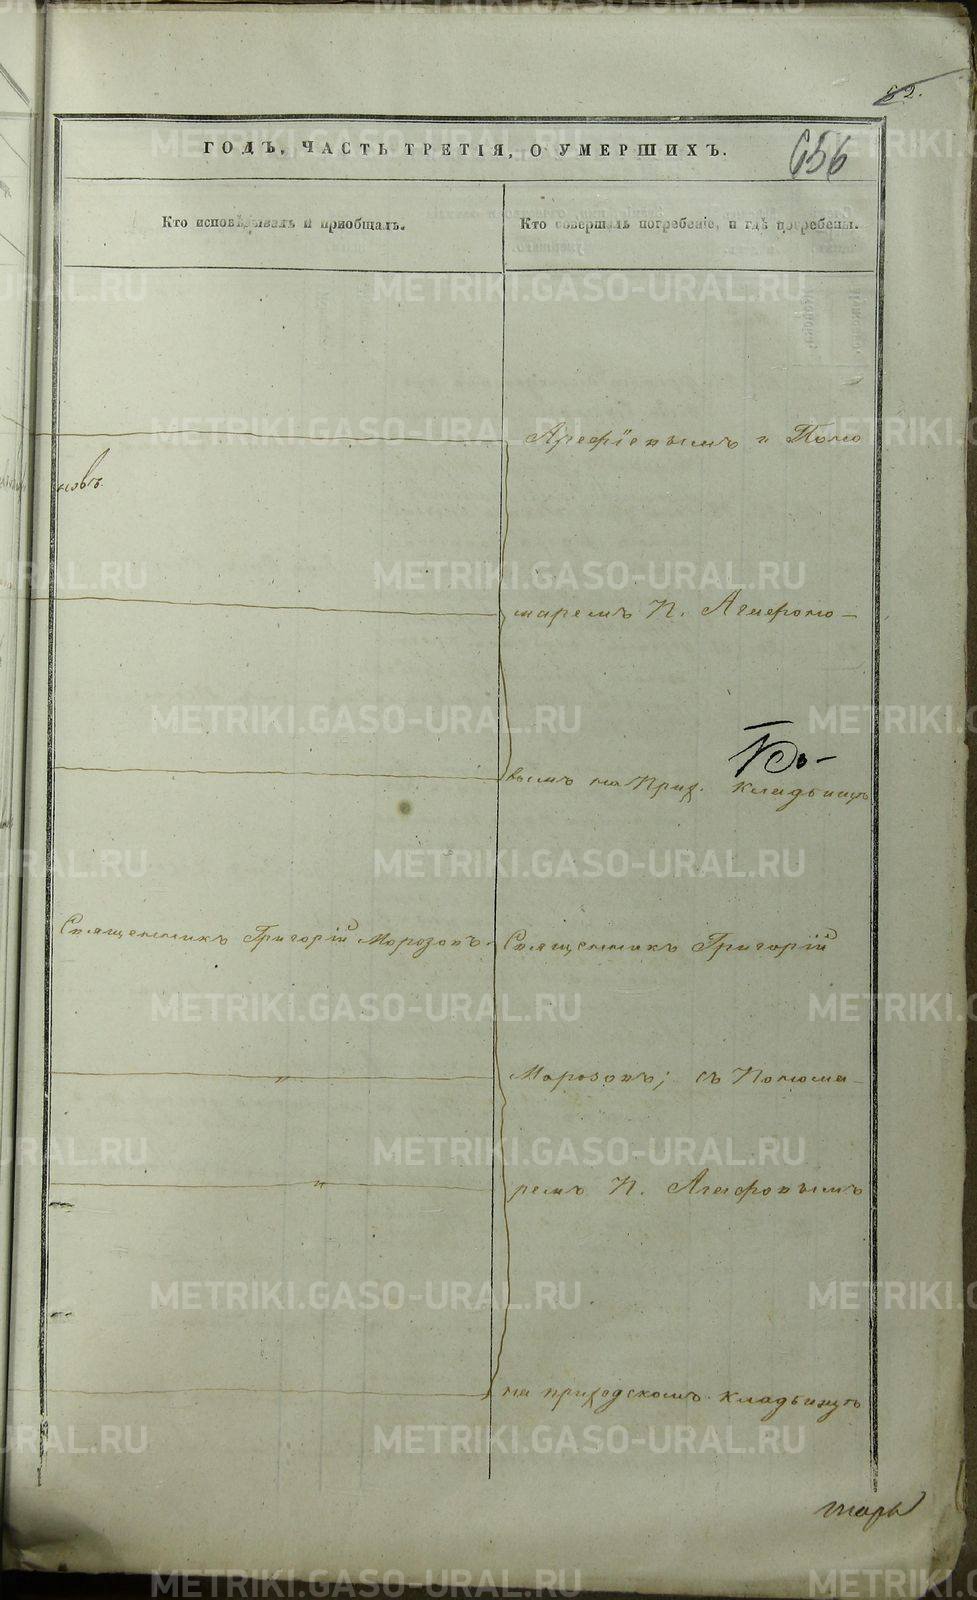 82.
656
ГОДЪ, ЧАСТЬ ТРЕТІЯ, О УМЕРШИХЪ.
Кто исповѣдывалъ и пріобщалъ.
Кто совершалъ погребеніе, и гдѣ погребены.
Арефіевымъ и Поно
новъ.
маремъ П. Агафоно–
вымъ на Прих. кладбищѣ
Священникъ Григорій Морозовъ.
Священникъ Григорій
Морозовъ; съ Понома–
ремъ П. Агафоновымъ
на приходскомъ кладбищѣ
METRIKI.GASO-URAL.RU